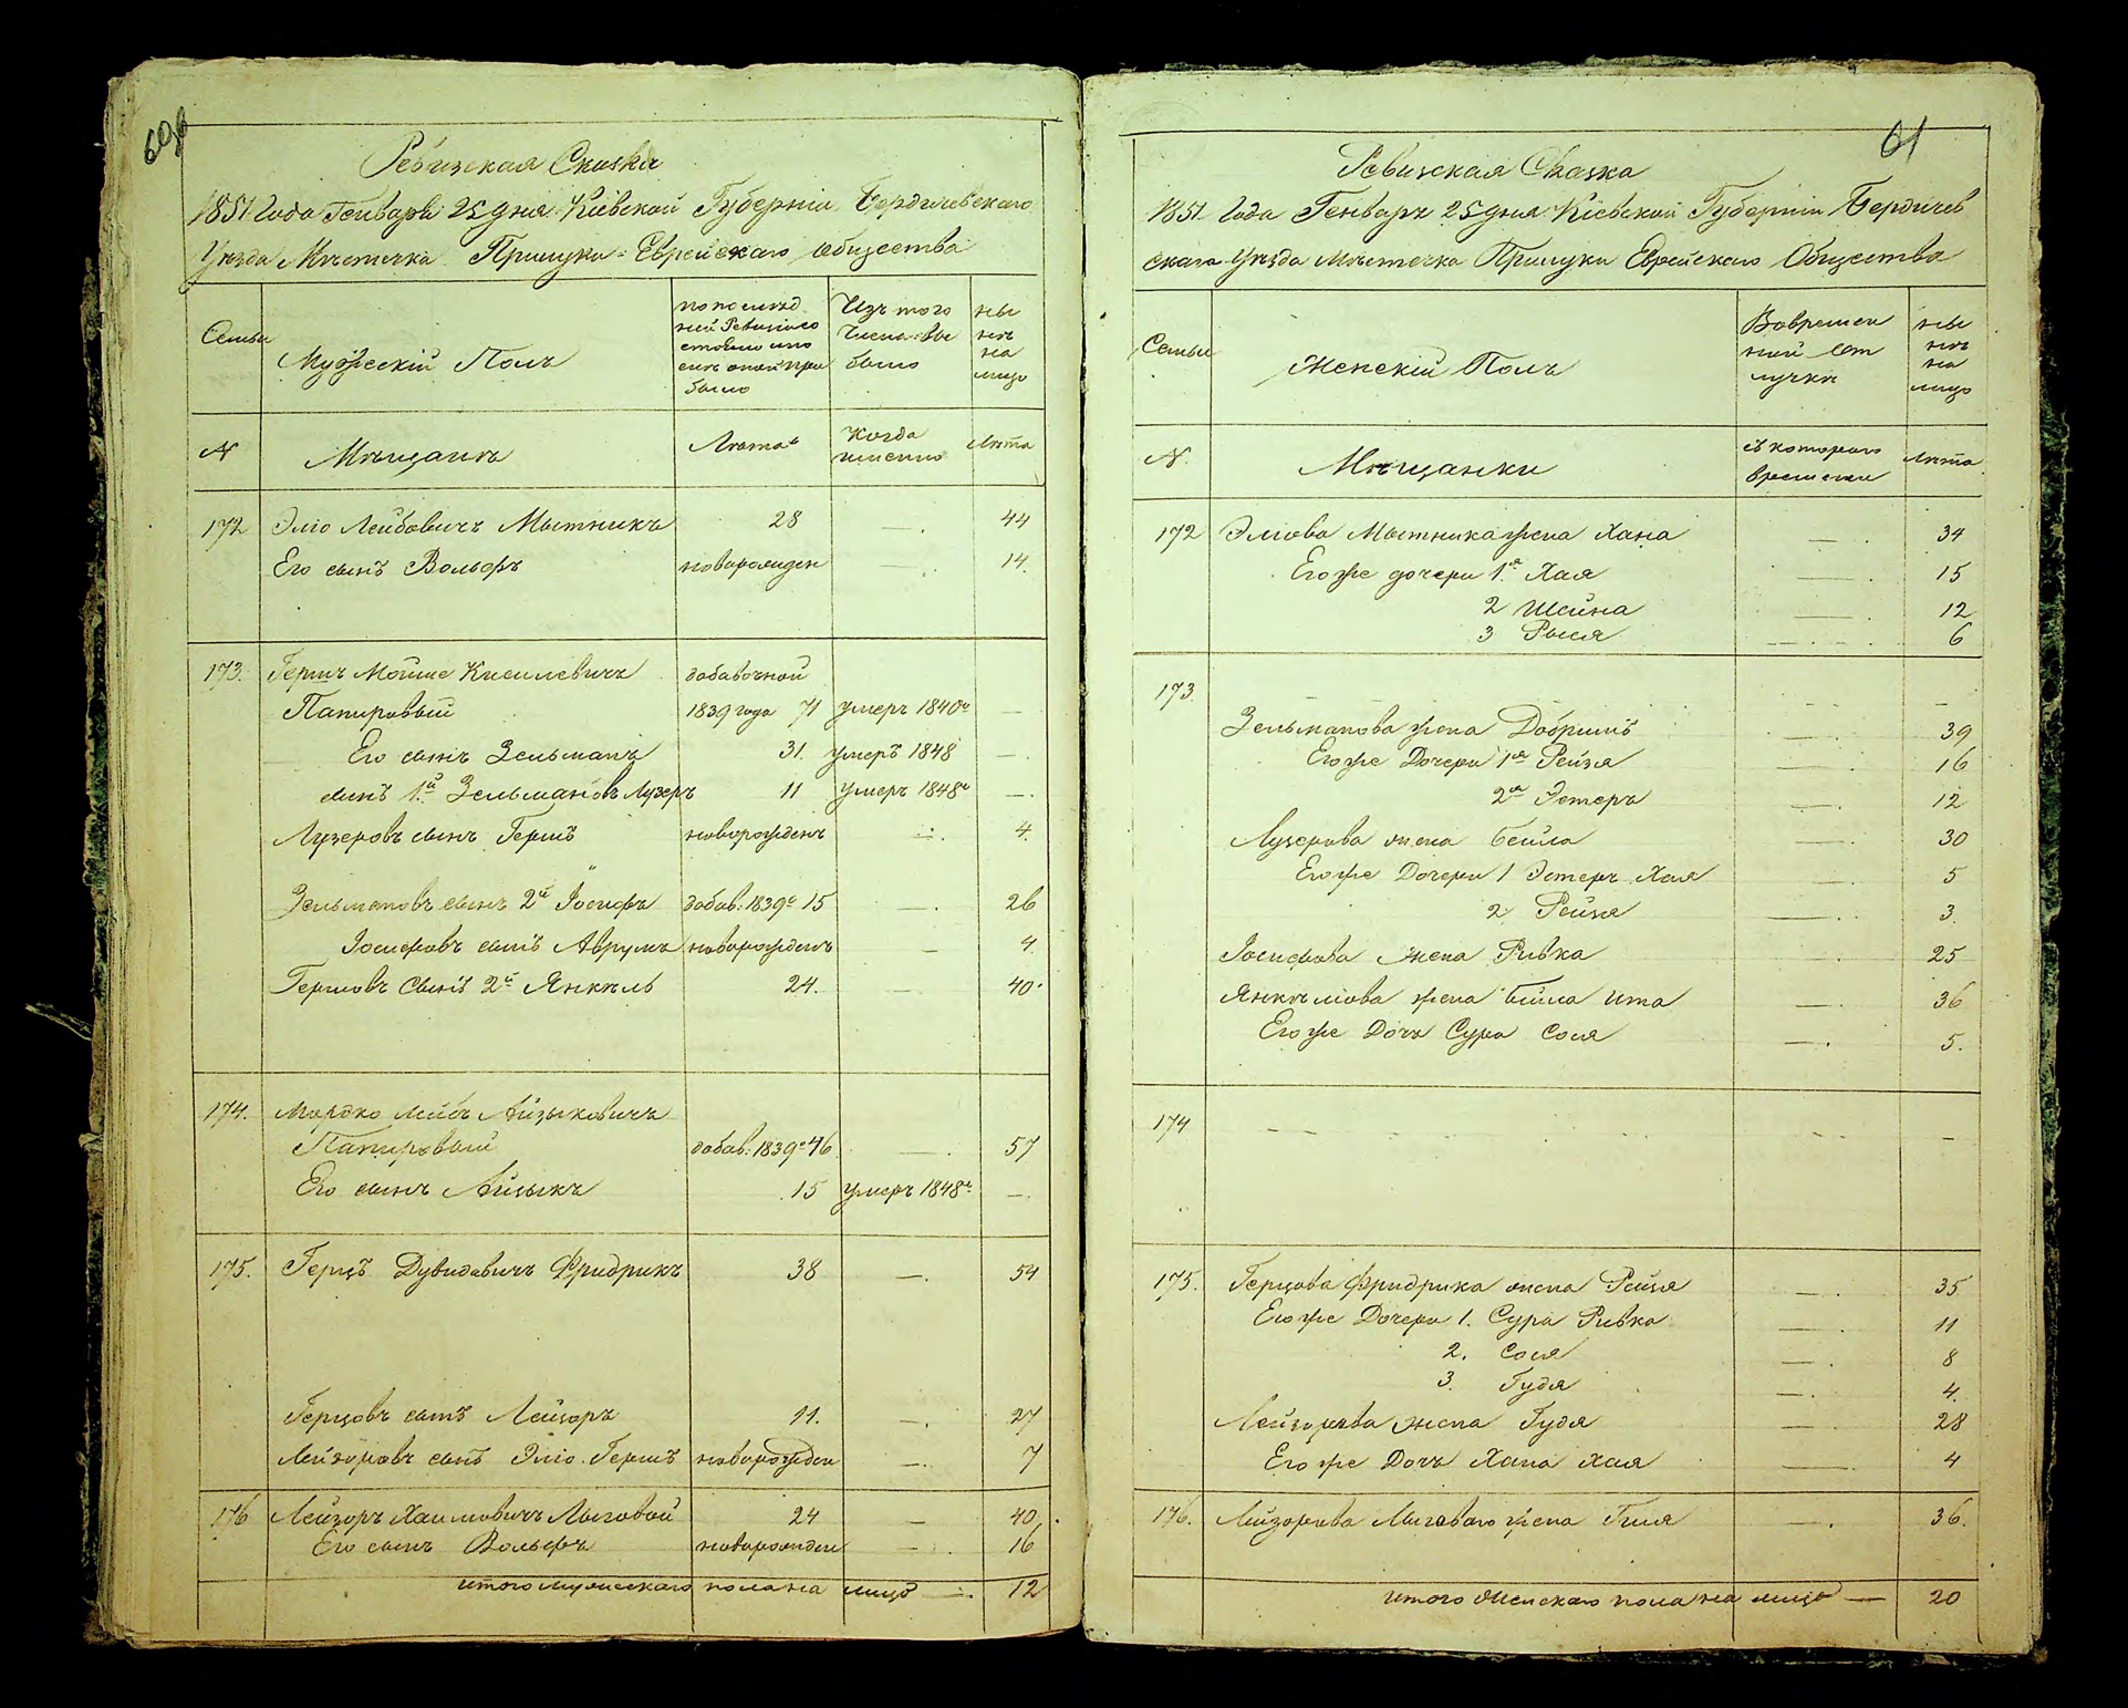 60об
Ревизская Сказка
1851 Года Генваря 25 дня Кіевской Губерніи Бердичевскаго
Уезда Мѣстечка Прилуки Еврейскаго общества
Семьи
Мужескій Полъ
По послѣд
ней Ревизіи со
стояло и по
слѣ оной при
было
Изъ того
Числа вы
было
ны
нѣ
на
лицо
№
Мѣщанъ
Лѣта
Когда
именно
Лѣта
172 Элio Лейбовичъ Мытникъ 28 — 44
Его сынъ Вольфъ новорожден — 14.
173. Гершъ Мошие Киселевичъ добавочной
Папировый 1839 года 71 умеръ 1840г —
Его сынъ Зельманъ 31. умеръ 1848 —
сынъ 1й Зельмановъ Лузеръ 11 умеръ 1848г —
Лузеровъ сынъ Гершъ новорожденъ — 4.
Зельмановъ сынъ 2й Іосифъ добав: 1839г 15 — 26
Іосифовъ сынъ Аврумъ новорожденъ — 4
Гершовъ Сынъ 2й Янкѣль 24. — 40.
174. Мордко Лейбъ Айзыковичъ
Папировый добав: 1839г 46 — 57
Его сынъ Айзыкъ 15 умеръ 1848г —
175. Герцъ Дувидовичъ Фридрикъ 38 — 54
Герцовъ сынъ Лейзоръ 11. — 27
Лейзоровъ сынъ Элio Гершъ новорожден — 7
176 Лейзоръ Хаимовичъ Лыговой 24 — 40.
Его сынъ Вольфъ новорожден — 16
итого мужескаго пола на лицо — 12
61
Ревизская Сказка
1851 Года Генваря 25 дня Кіевской Губерніи Бердичев
скаго Уезда Мѣстечка Прилуки Еврейскаго Общества
Семьи
Женскій Полъ
Вовремен
ной от
лучки
ны
нѣ
на
лицо
№.
Мѣщанки
съ котораго
времени
Лѣта
172 Элiова Мытника жена Хана — 34
Его же дочери 1я Хая — 15
2 Шейна — 12
3 Рыся — 6
173.
Зельманова жена Добришъ — 39
Его же Дочери 1я Рейзя — 16
2я Эстеръ — 12
Лузерова жена Бейла — 30
Его же Дочери 1 Эстеръ Хая — 5
2 Рейзя — 3.
Іосифова Жена Ривка — 25
Янкѣліова жена Бейла Ита — 36
Его же Дочь Сура Сося — 5.
174 — — —
175. Герцова Фридрика жена Рейзя — 35
Его же Дочери 1. Сура Ривка — 11
2. Сося — 8
3. Гудя — 4.
Лейзорова Жена Гудя — 28
Его же Дочь Хана Хая — 4
176. Лейзорова Лыговаго жена Гиля — 36.
итого Женскаго пола на лицо — 20